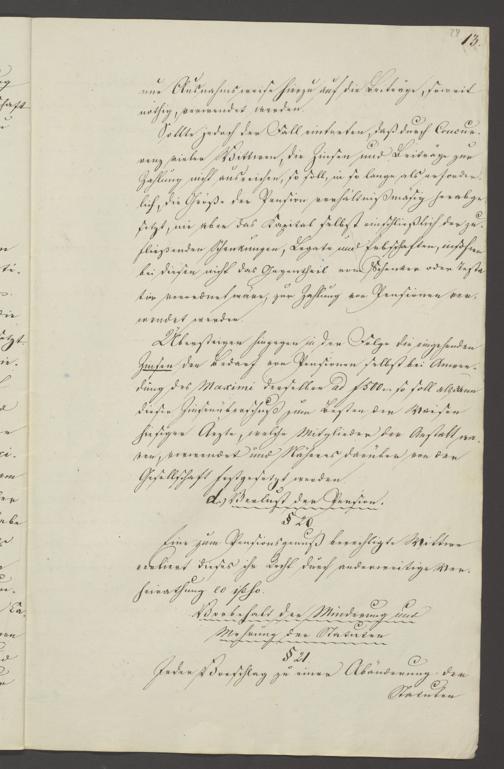 28
13.
nur Ausnahmsweise hinzu auf die Beiträge, soweit
nöthig, verwendet werden.
Sollte jedoch der Fall eintreten, daß durch Concur-
renz vieler Wittwen, die Zinsen und Beiträge zur
Zahlung nicht ausreichen, so soll, in so lange als erforder-
lich, die Größe der Pension verhältnißmäßig herabge-
setzt, nie aber das Kapital selbst einschließlich der zu-
fließenden Schenkungen, Legate und Erbschaften, insofern
bei diesen nicht das Gegentheil vom Schenker oder Testa-
tor verordnet wäre, zur Zahlung von Pensionen ver-
wendet werden.
Übersteigen hingegen in der Folge die eingehenden
Zinsen den Bedarf von Pensionen selbst bei Anwen-
dung des Maximi derselben ad f 500.-, so soll alsdann
dieser Zinsenüberschuß zum Besten der Waisen
hiesiger Aerzte, welche Mitglieder der Anstalt wa-
ren, verwendet und Näheres darüber von der
Gesellschaft festgesetzt werden.
d.) Verlust der Pension.
§ 20
Eine zum Pensionsgenuß berechtigte Wittwe
verliert dieses ihr Recht durch anderweitige Ver-
heirathung eo ipso.
Vorbehalt der Minderung und
Mehrung der Statuten
§ 21
Jeder Vorschlag zu einer Abänderung der
Statuten